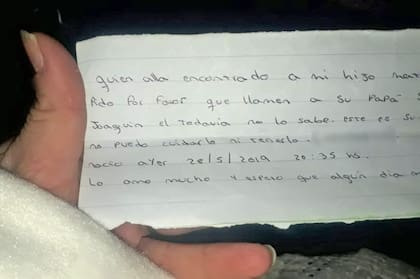 quien alla encontrado a mi hijo
Pido Por Favor que llamen a su Papá
Joaquin el Todavia no lo sabe. este es su
no puedo cuidarlo ni tenerlo.
nacio ayer 28/5/2019 20:35 hs.
Lo amo mucho y espero que algún dia